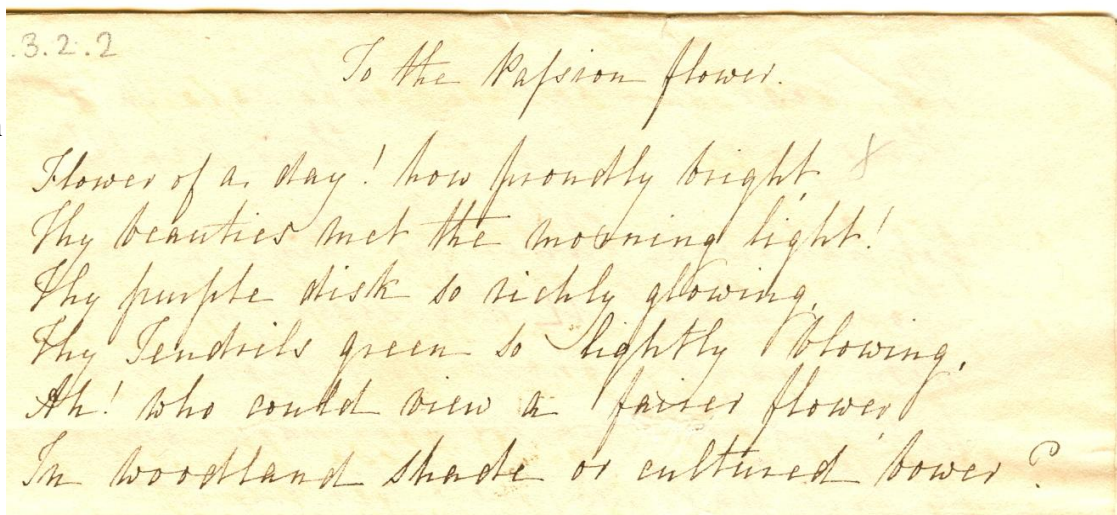 .3.2.2
To the Paſsion flower.
Flower of a day! how proudly bright
Thy beauties met the morning light!
Thy purple disk so richly glowing,
Thy Tendrils green so lightly blowing,
Ah! who could view a fairer flower
In woodland shade or cultured bower?